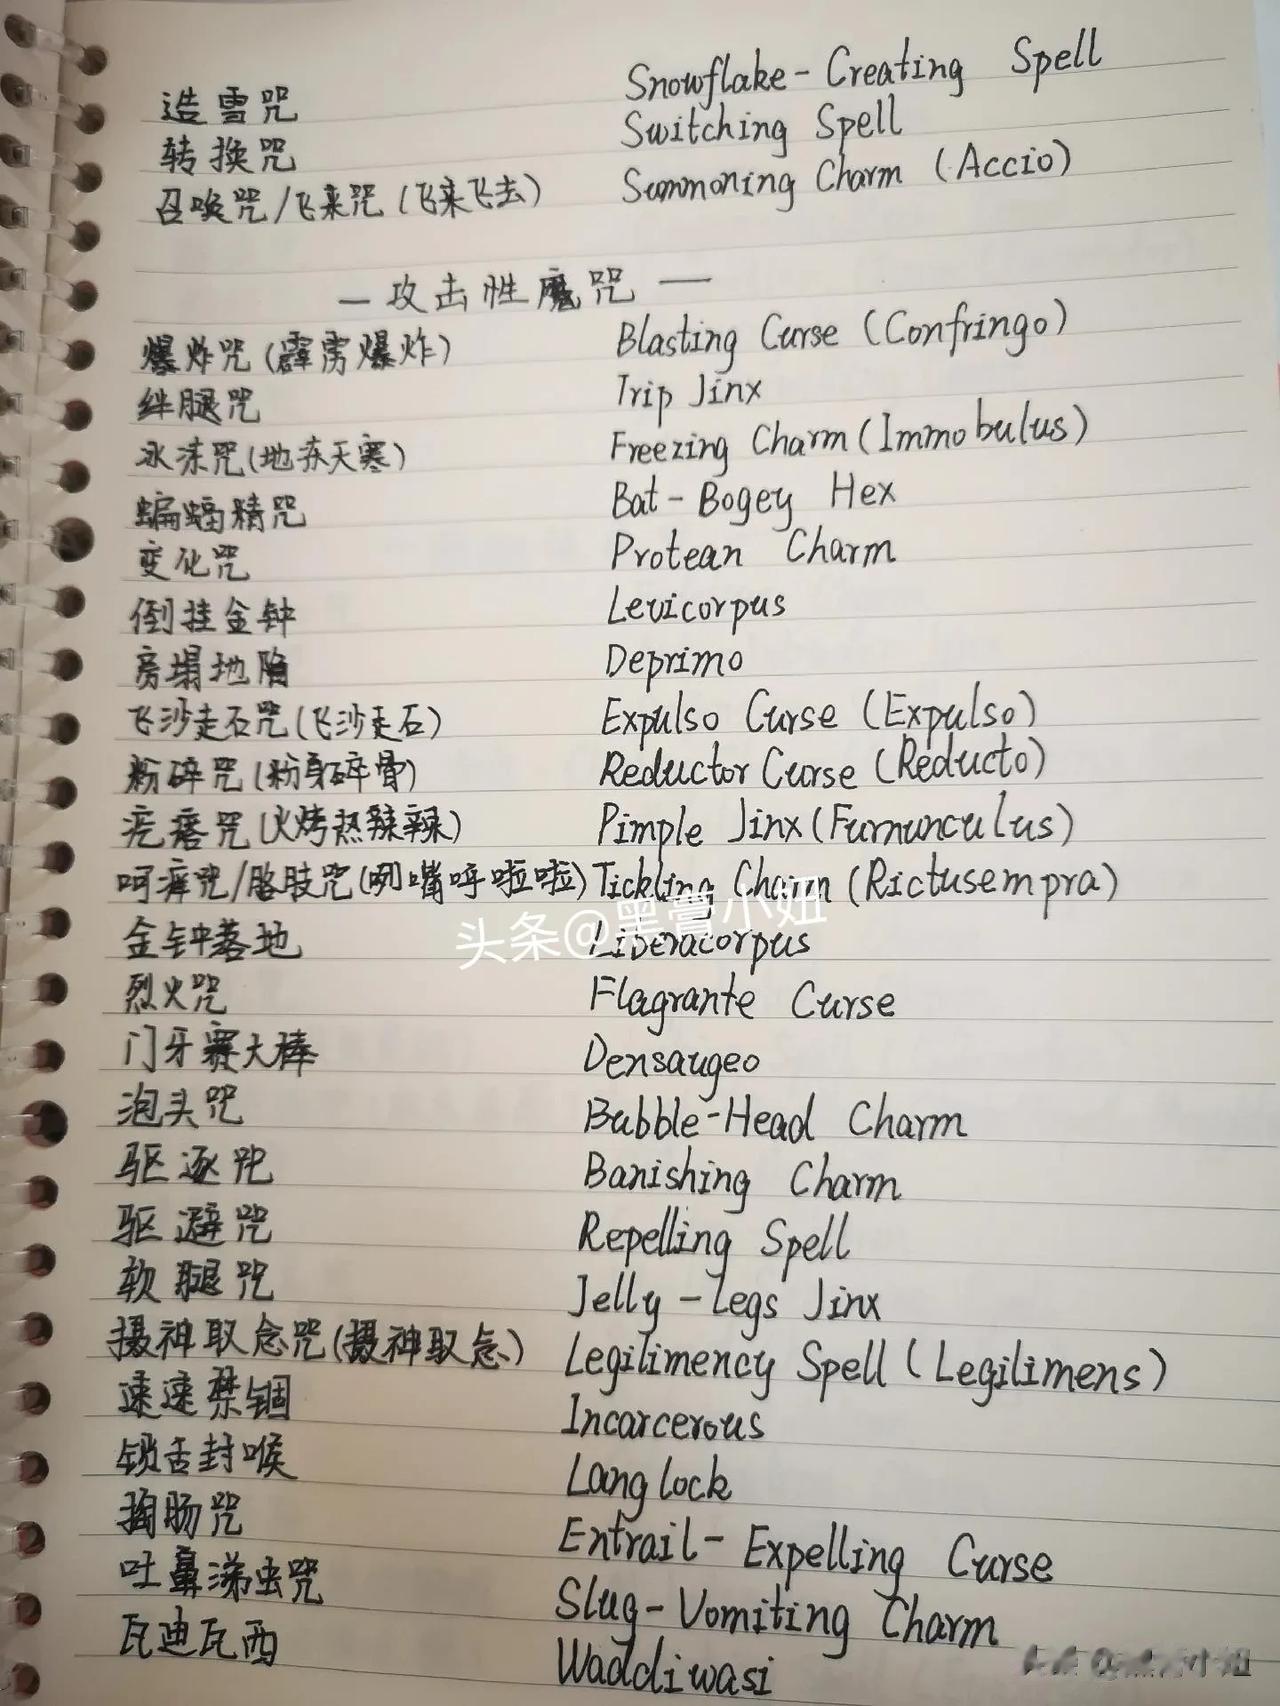 造雪咒 Snowflake-Creating Spell
转换咒 Switching Spell
召唤咒/飞来咒(飞来飞去) Summoning Charm (Accio)
—攻击性魔咒—
爆炸咒(霹雳爆炸) Blasting Curse (Confringo)
绊腿咒 Trip Jinx
冰冻咒(地冻天寒) Freezing Charm (Immobulus)
蝙蝠精咒 Bat-Bogey Hex
变化咒 Protean Charm
倒挂金钟 Levicorpus
房塌地陷 Deprimo
飞沙走石咒(飞沙走石) Expulso Curse (Expulso)
粉碎咒(粉身碎骨) Reductor Curse (Reducto)
疙瘩咒(火烤热辣辣) Pimple Jinx (Furnunculus)
呵痒咒/胳肢咒(咧嘴呼啦啦) Tickling Charm (Rictusempra)
头条@黑膏小妞
金钟落地 Liberacorpus
烈火咒 Flagrante Curse
门牙赛大棒 Densaugeo
泡头咒 Bubble-Head Charm
驱逐咒 Banishing Charm
驱避咒 Repelling Spell
软腿咒 Jelly-Legs Jinx
摄神取念咒(摄神取念) Legilimency Spell (Legilimens)
速速禁锢 Incarcerous
锁舌封喉 Langlock
掏肠咒 Entrail-Expelling Curse
吐鼻涕虫咒 Slug-Vomiting Charm
瓦迪瓦西 Waddiwasi